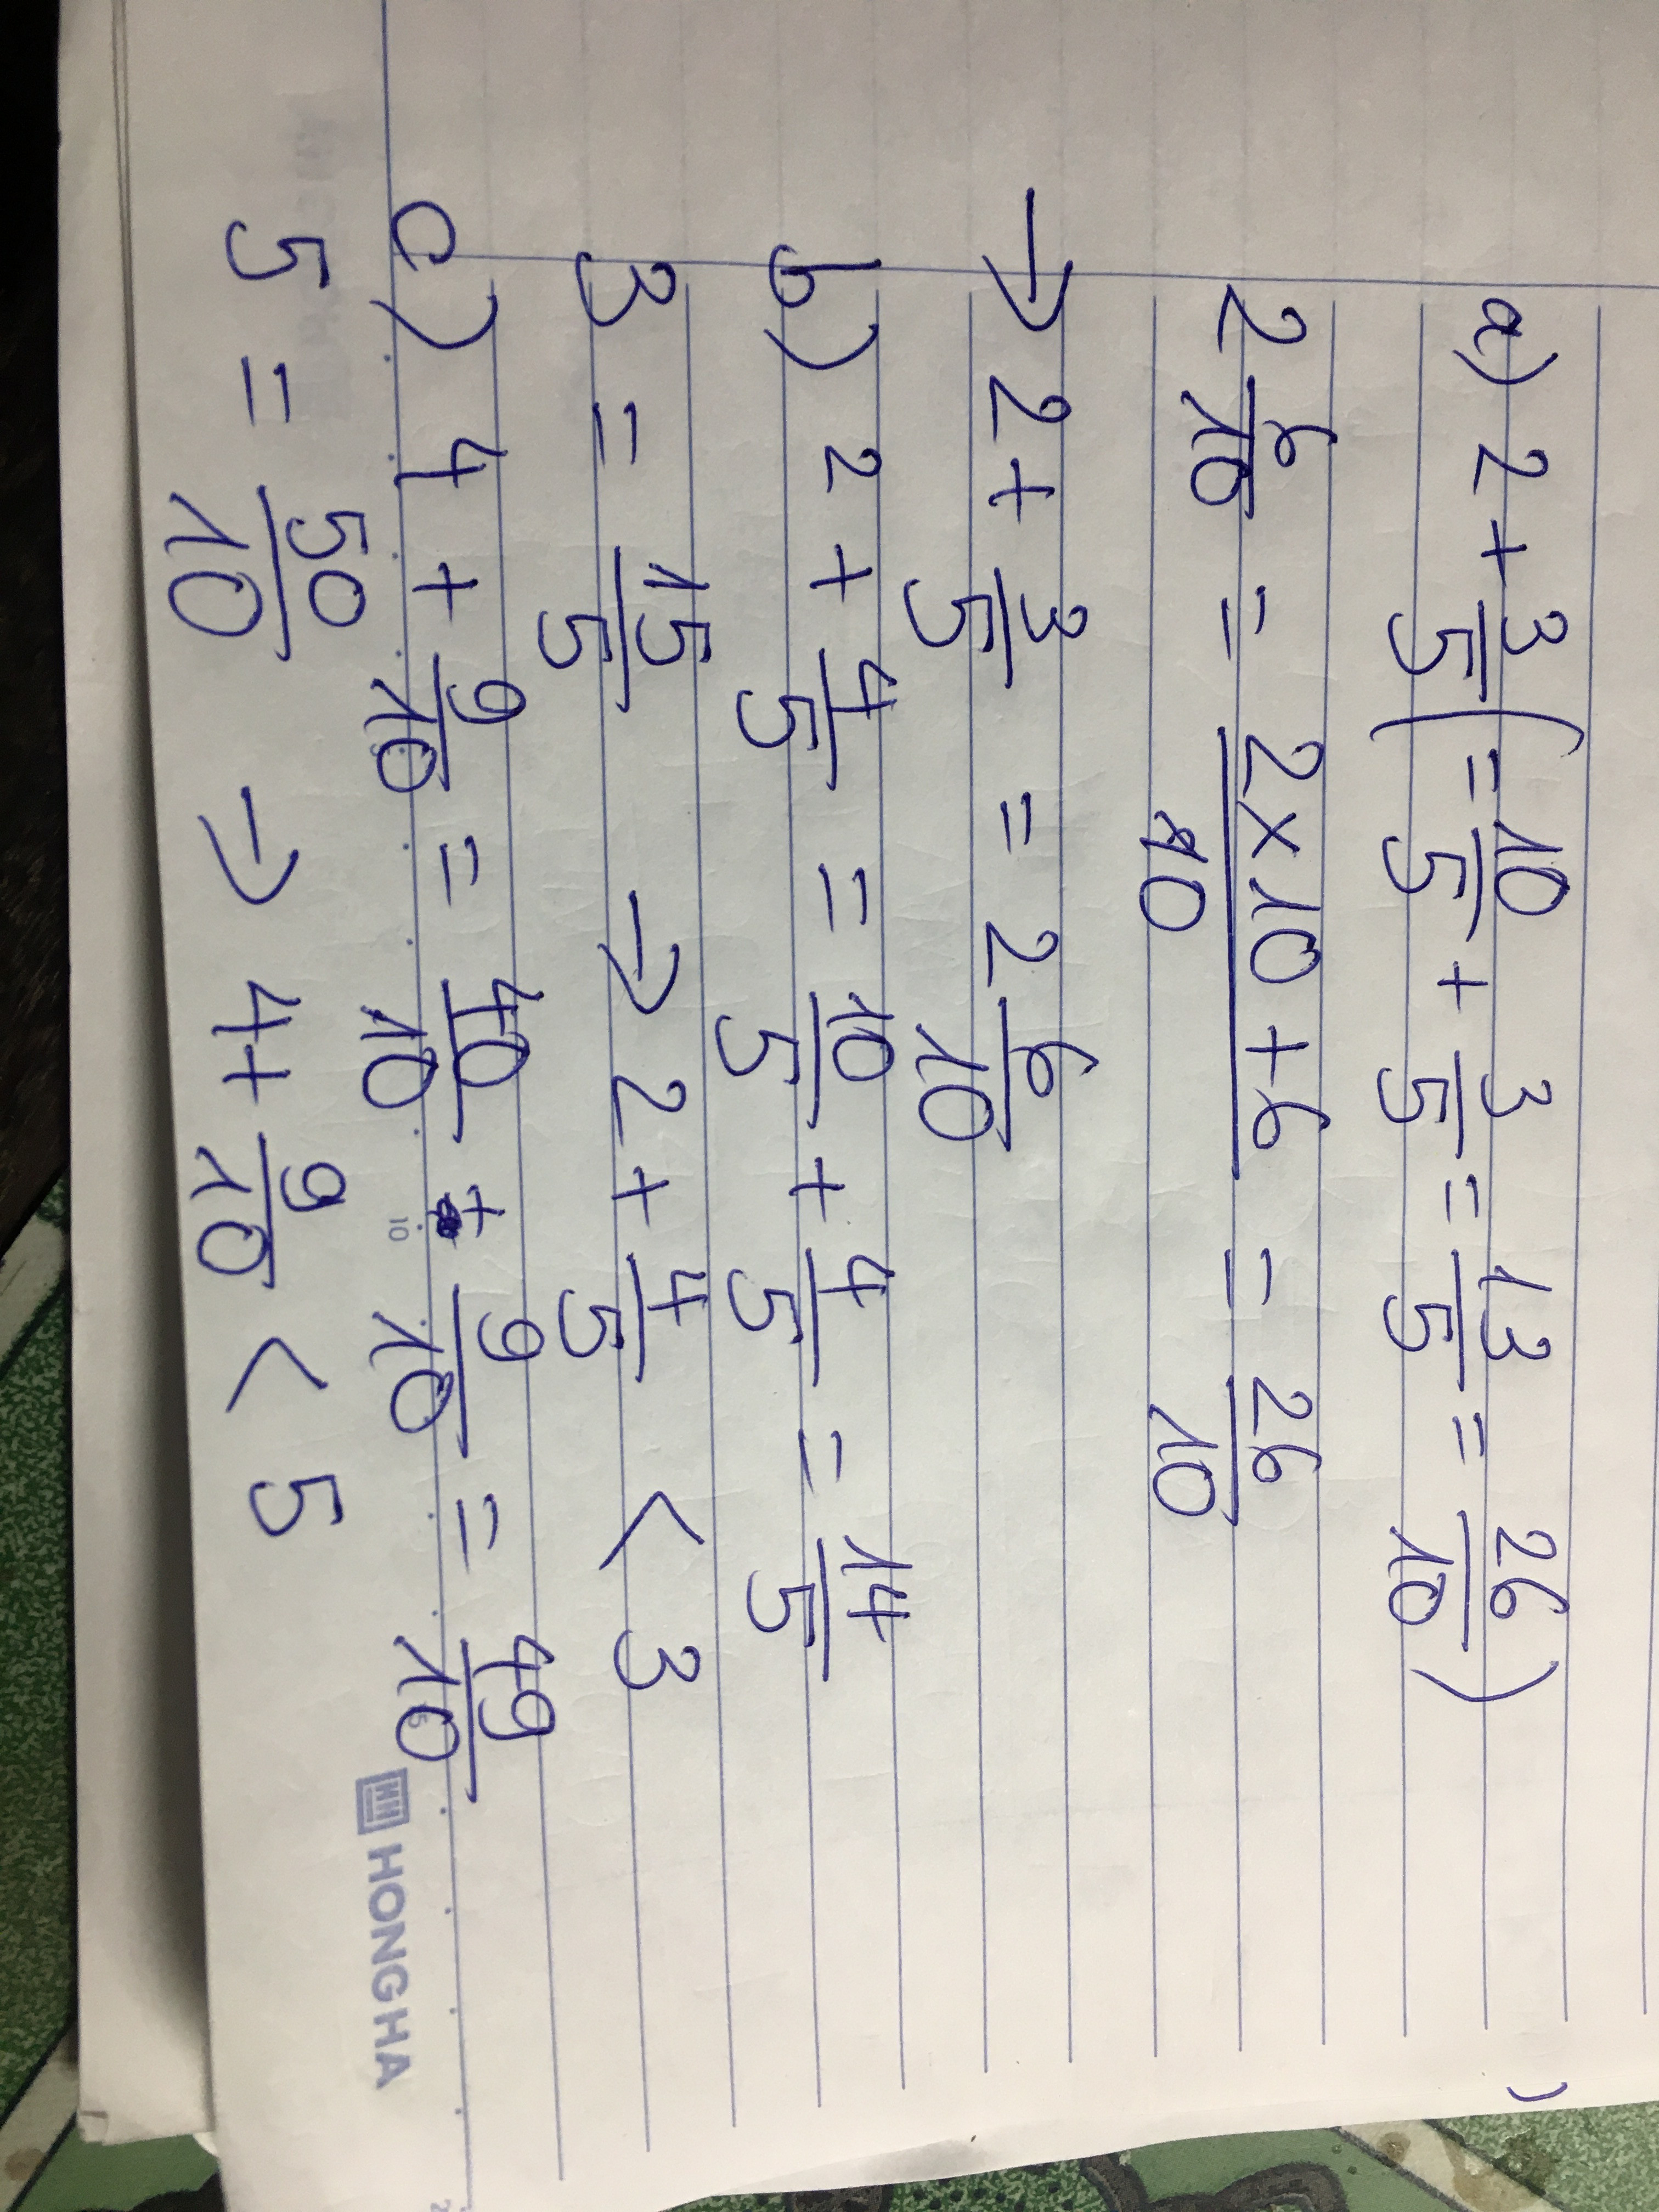 a) 2 + 3/5 (= 10/5 + 3/5 = 13/5 = 26/10)
2 6/10 = (2×10+6)/10 = 26/10
→ 2 + 3/5 = 2 6/10
b) 2 + 4/5 = 10/5 + 4/5 = 14/5
3 = 15/5 → 2 + 4/5 < 3
c) 4 + 9/10 = 40/10 + 9/10 = 49/10
5 = 50/10 → 4 + 9/10 < 5
10
HONG HA